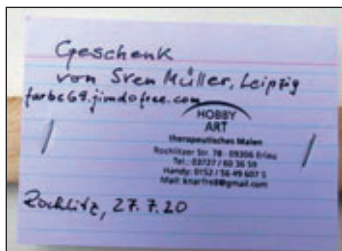 Geschenk
von Sven Müller, Leipzig
farbe69.jimdofree.com
HOBBY
ART
therapeutisches Malen
Rochlitzer Str. 78 - 09306 Erlau
Tel.: 03727 / 60 36 59
Handy: 0152 / 56 49 607 5
Mail: knarfre8@gmail.com
Rochlitz, 27.7.20